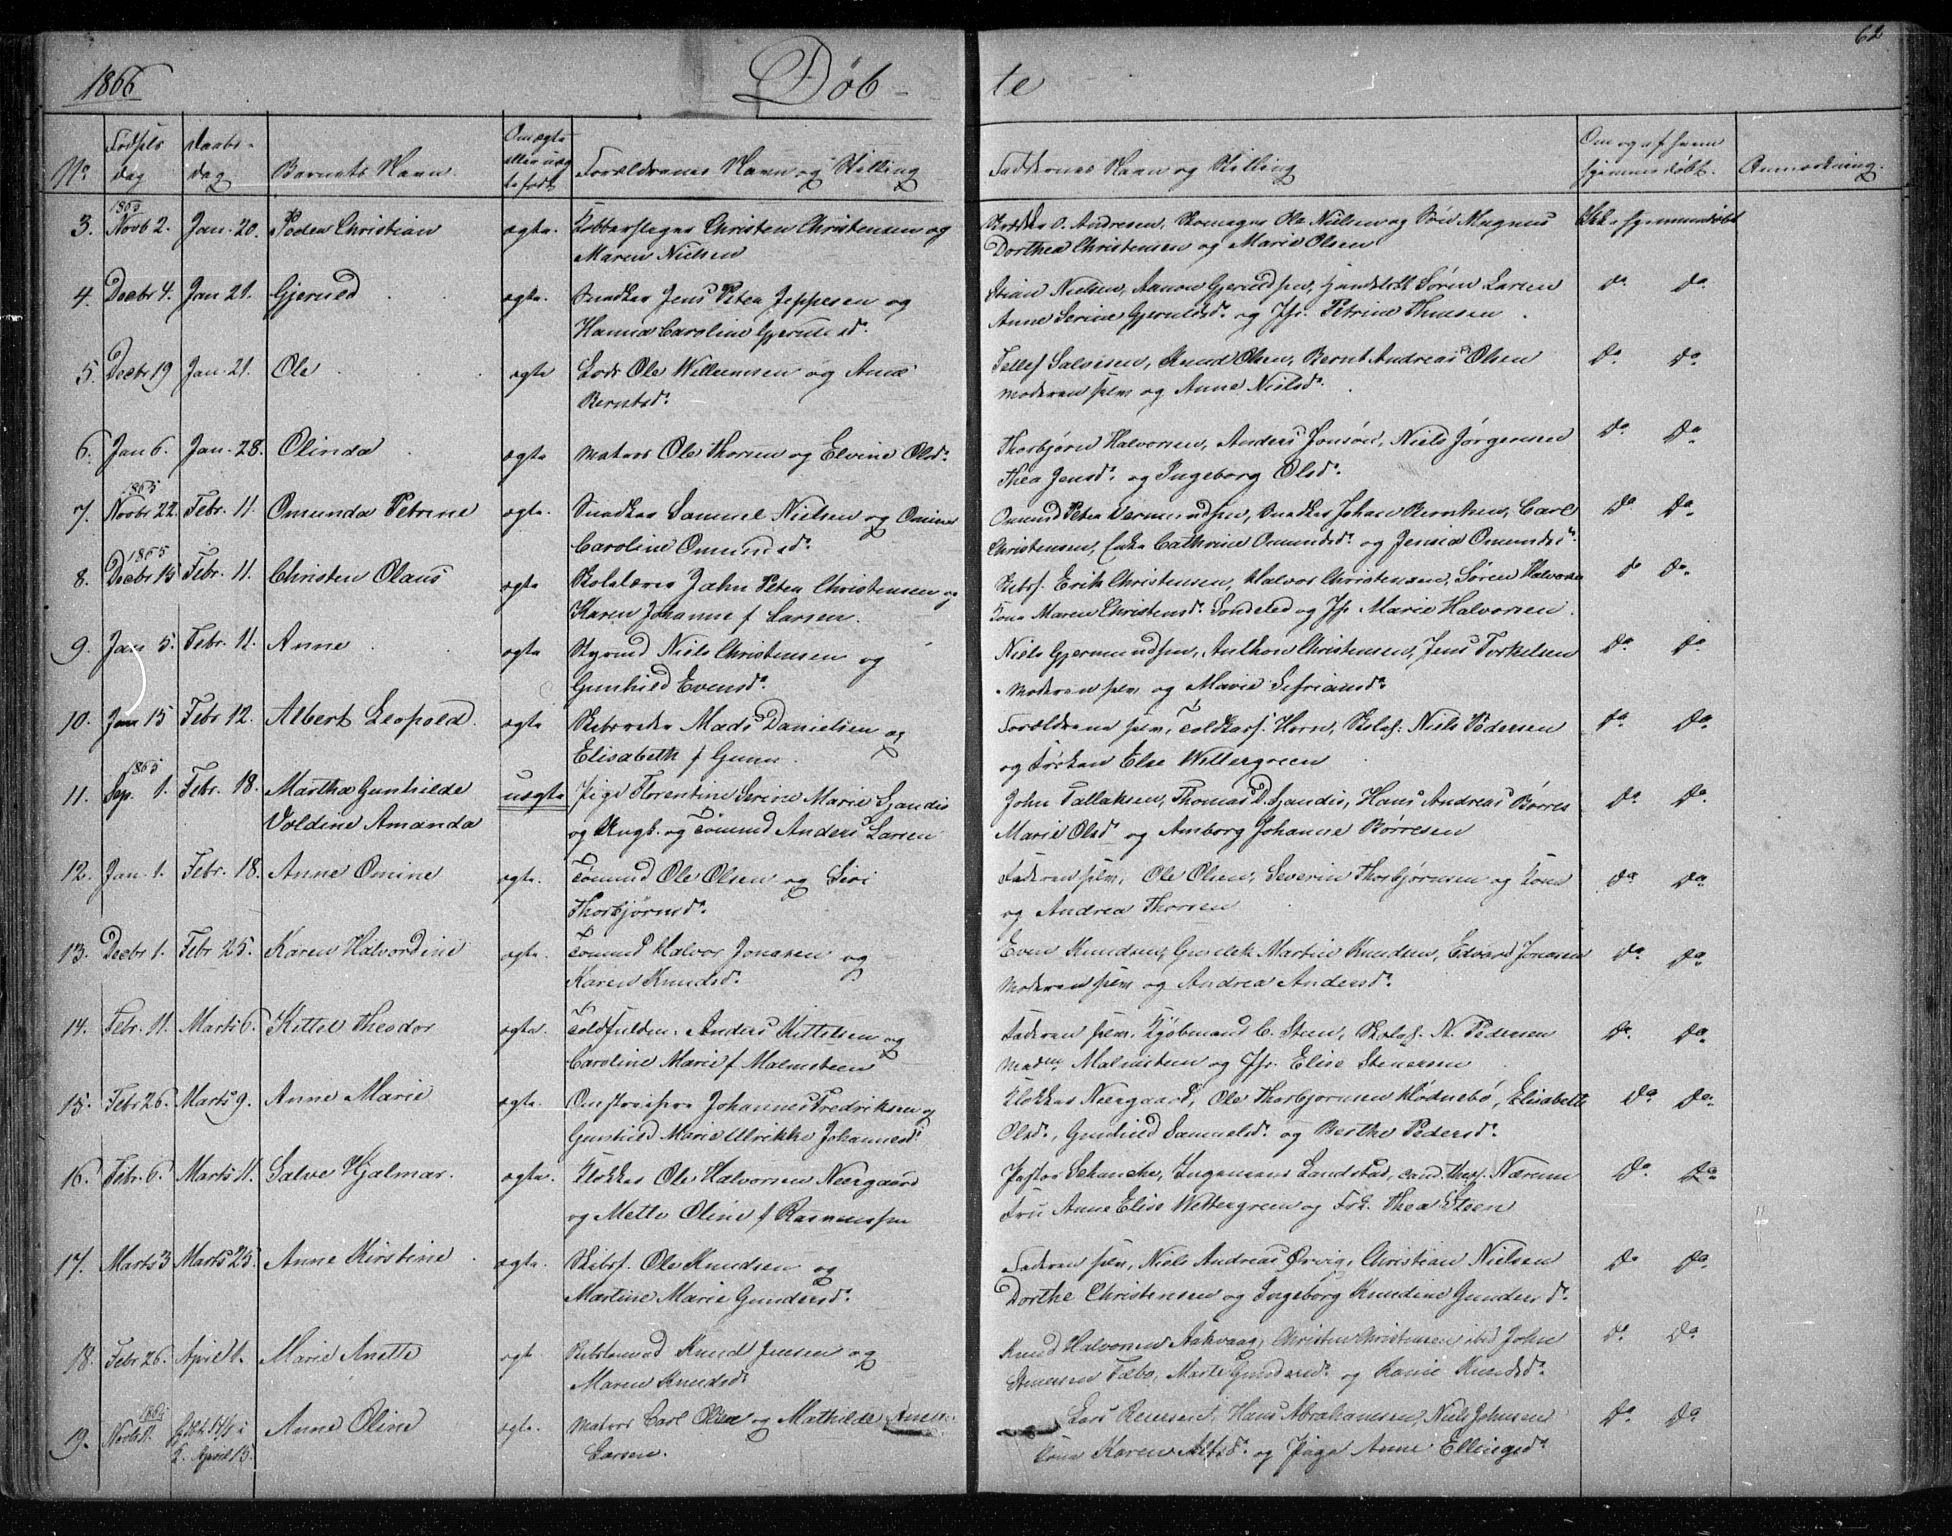 62
1866 Döb- te
No. Fødsels dag Daabs-dag Barnets Navn. Om ægte eller uægte født Forældrenes Navn og Stilling Faddernes Navn og Stilling Om og af hvem hjemmedøbt. Anmærkning.
1865
3. Novb 2. Jan. 20. Peder Christian ægte. Kobberslager Christen Christensen og O. Andresen, Ole Nielsen og Magnus Ikke hjemmedøbt
Maren Nielsen Dorthea Christensen og Marie Olsen
4. Decbr 4. Jan 21. Gjerued ægte. Snedker Jens Peter Jeppesen og Stian Nielsen, Søren Larsen Do Do
Hanna Caroline Anne Serine og Jfr. Petrine Thuesen
5. Decbr 19 Jan. 21. Ole ægte Lods Ole Willumsen og Anne Tellef Salvesen, Knud Olsen, Bernt Andreas Olsen Do Do
Berntsd. Moderen selv og Anne Nielsd.
6. Jan 6. Jan. 28. Olinda ægte Matros Ole Thorsen og Elvine Olsd. Thorbjørn Halvorsen, Anders Jonsøn, Niels Jørgensen Do Do
Thea Jensd. og Ingeborg Olsd.
1865
7. Novbr 22. Febr. 11. Omunda Petrine ægte. Snedker Samuel Nielsen og Omine Omund Peter, Snedker Johan Berntsen, Carl Do Do
Caroline Omundsd. Christensen, Enke Cathrine Omundsd. og Jensia Omundsd.
1865
8. Decbr 15 Febr. 11. Christen Olaus ægte Skolelærer John Peter Christensen og Skibsf. Erik Christensen, Halvor Christensen, Søren Halvorsen Do Do
Karen Johanne f Larsen. Kone Maren Christensd. Søndeled og Jfr Marie Halvorsen.
9. Jan 5. Febr. 11. Anne ægte Niels Christensen og Niels Gjermundsen, Anthon Christensen, Jens Torkelsen Do Do
Gunhild Evensd. Moderen selv og Marie
10. Jan 15 Febr 12. Albert Leopold. ægte Skibsreder Mads Danielsen og Forældrene selv, Toldkass. Horn, Skolel. Niels Pedersen Do Do
Elisabeth f Gunn. og Frøken Else Wettergreen
1865
11. Sep. 1. Febr. 18. Martha Gunhilde uægte Pige Florentine Serine Marie Gjandis John Tallaksen, Thomas D. Gjandis, Hans Andreas Børres Do Do
Voldine Amanda og Ungk. og Tømmd Anders Larsen Marie Olsd. og Amborg Johanne Børresen
12. Jan. 1. Febr. 18. Anne Omine ægte. Tømmd Ole Olsen og Siri Faderen selv, Ole Olsen, Severin Thorbjørnsen og Kone Do Do
Thorbjørnsd. og Andrea Thorsen
13. Decbr 1. Febr 25. Karen Halvordine ægte. Tømmd Halvor Jonasen og Even Knudsen, Martin Knudsen, Edvard Jonasen Do Do
Karen Knudsd. Moderen selv og Andrea Andersd.
14. Febr. 11. Marts 6. Kittel Theodor ægte. Anders Kittelsen og Faderen selv, Kjøbmand C. Steen, Skolel. N. Pedersen Do. Do.
Caroline Marie f Malmsteen Madm Malmsteen og Jfr. Elise Stenersen
15. Febr 26. Marts 9. Anne Marie ægte. Johannes Fredriksen og Klokker Neergaard, Ole Thorbjørnsen Hødnebø, Elisabeth Do Do
Gunhild Marie Ulrikke Johannesd. Olsd., Gunhild Samuelsd. og Berthe Pedersd.
16. Febr. 6. Marts 11. Salve Hjalmar. ægte. Klokker Ole Halvorsen Neergaard Pastor Schanche, Landstad, cand. theol. Nærum Do. Do
og Mette Oline f Rasmussen Fru Anne Elise Wettergreen og Frk. Thea Steen
17. Marts 3 Marts 25. Anne Kirstine ægte. Skibsf. Ole Knudsen og Faderen selv, Niels Andreas Ørvig, Christian Nielsen Do Do
Martine Marie Gundersd. Dorthe Christensen og Ingeborg Knudine Gundersd.
18. Febr 26. April 1. Marie Anette ægte Knud Jensen og Knud Halvorsen Aakvaag, Christen Christensen ibd John Do Do
Maren Knudsd. Marte Gundersd. og Knudsd.
1865
19. Novb 11. April 15. Anne Oline ægte. Matros Carl Olsen og Mathilde Lars, Hans Abrahamsen, Niels Johnsen Do Do
Larsen. Kone Karen og Pige Anne Ellingsd.